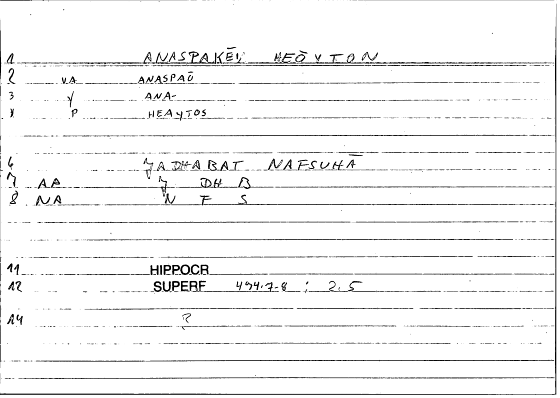 1 ANASPAKĒI, HEŌYTON
2 VA ANASPAŌ
3 Y ANA-
P HEAYTOS
6 JADHABAT NAFSUHĀ
7 AA J DH B
8 NA N F S
11 HIPPOCR
12 SUPERF 494.7-8 ; 2.5
14 ?